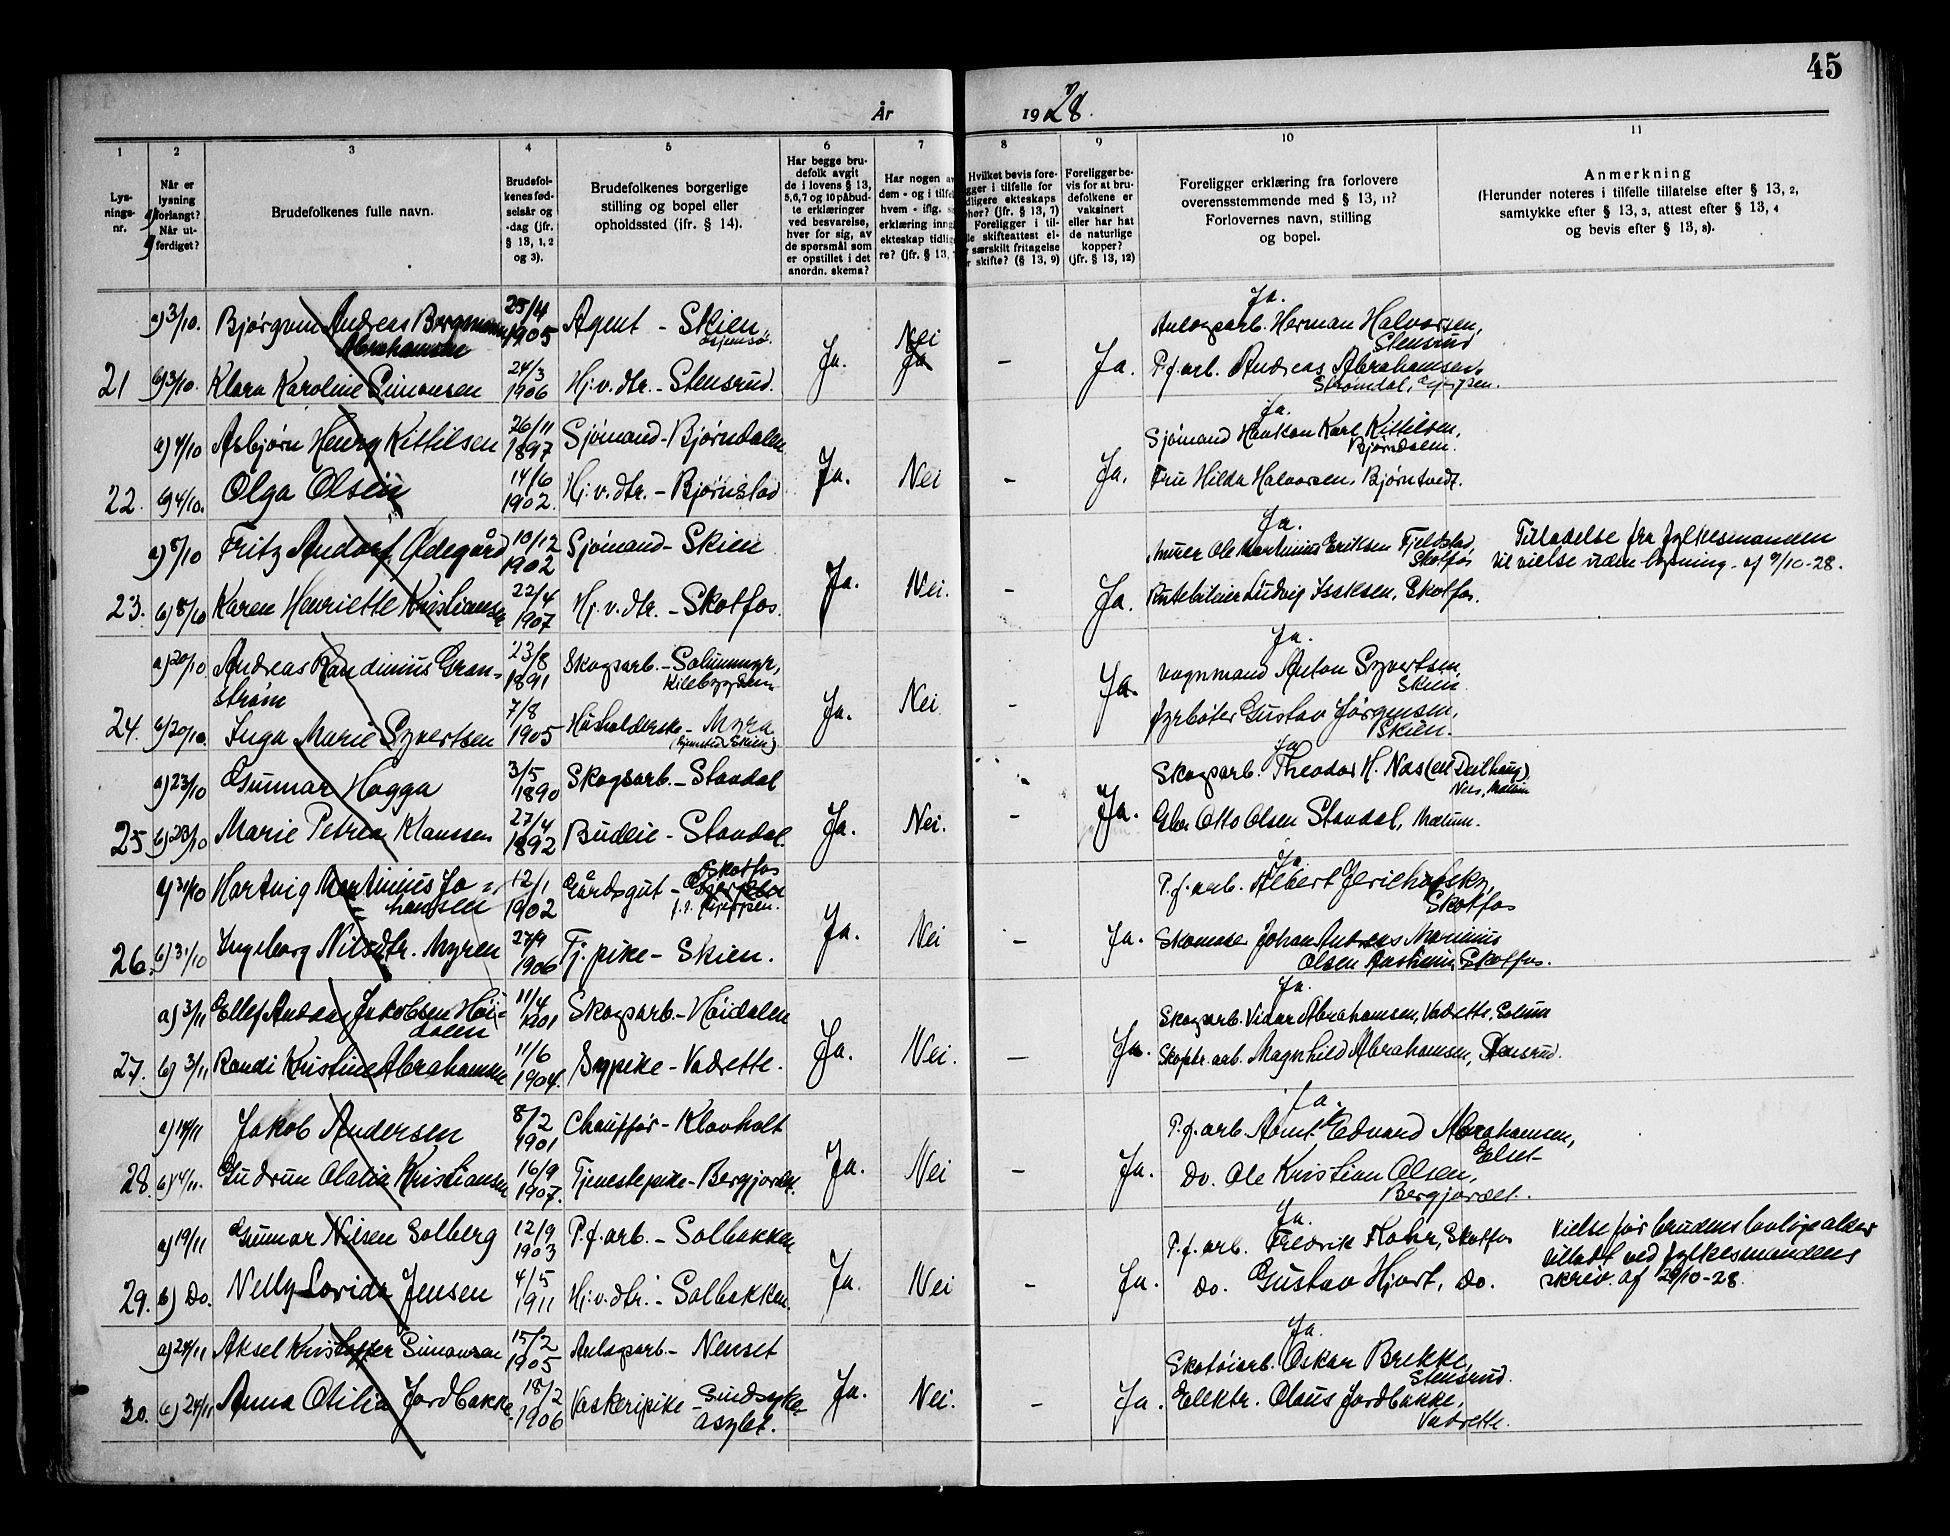 45
År 1928.
1
2
3
4
5
6
7
8
9
10
11
Lys-
nings-
nr.
Når er
lysning
forlangt?
Når ut-
ferdiget?
Brudefolkenes fulle navn.
Brudefol-
kenes fød-
selsår og
-dag (jfr.
§ 13, 1, 2
og 3).
Brudefolkenes borgerlige
stilling og bopel eller
opholdssted (jfr. § 14).
Har begge bru-
defolk avgit
de i lovens § 13,
5,6,7 og 10 påbud-
te erklæringer
ved besvarelse,
hver for sig, av
de spørsmål som
er opstillet i det
anordn. skema?
Har nogen av
dem - og i tilfel
hvem - iflg.
erklæring inng
ekteskap tidlig
re? (jfr. § 13,
Hvilket bevis fore-
gger i tilfelle for
dligere ekteskaps
hør? (jfr. § 13, 7)
Foreligger i til-
le skifteattest el-
r særskilt fritagelse
r skifte? (§ 13, 9)
Foreligger be-
vis for at bru-
defolkene er
vaksinert
eller har hat
de naturlige
kopper?
(jfr. § 13, 12)
Foreligger erklæring fra forlovere
overensstemmende med § 13, 11?
Forlovernes navn, stilling
og bopel.
Anmerkning
(Herunder noteres i tilfelle tillatelse efter § 13, 2,
samtykke efter § 13, 3, attest efter § 13, 4
og bevis efter § 13, 8).
a) 3/10. Bjørgvin Andreas Bergmann 25/4 Agent - Skien Nei Ja.
Abrahamsen 1905 Anlegsarb. Herman Halvorsen,
Stensrud
21 b) 3/10. Klara Karoline Simonsen 24/3 1906 Hj.v.dtr. - Stensrud. Ja. Ja - Ja. P.f.arb. Andreas Abrahamsen,
Strømdal, Gjerpen.
a) 4/10 Asbjørn Henry Kittilsen 26/11 1897 Sjømand - Bjørndalen Ja.
Sjømand Haakon Karl Kittilsen,
Bjørndalen.
22. b) 4/10. Olga Olsen 14/6 1902. Hj.v.dtr. - Bjørnstad Ja. Nei - Ja. Fru Hilda Halvorsen, Bjørntvedt.
a) 8/10 Fritz Andorf Ødegård 10/12 1902 Sjømand - Skien Ja.
Murer Ole Martinius Eriksen Fjeldstad, Tilladelse fra fylkesmanden
Skotfos til vielse uden lysning. af 9/10-28.
23. b) 8/10 Karen Henriette Kristiansen 22/4 1907 Hj.v.dtr. - Skotfos. Ja. Nei. - Ja. Rutebileier Ludvig Isaksen, Skotfos.
a) 20/10 Andreas Randinius Gran- 23/8 1891 Skogsarb. - Solummyr, Ja.
strøm Kilebygden
Vognmand Anton Syvertsen,
Skien.
24. b) 20/10. Inga Marie Syvertsen 7/8 1905 Husholderske - Myra Ja. Nei - Ja. Fyrbøter Gustav Jørgensen,
(hjemsted Skien) Skien.
a) 23/10 Gunnar Hogga 3/5 1890 Skogsarb. - Stavdal Ja
Skogsarb. Theodor H. Næs
25 b) 23/10 Marie Petrea Klaussen 27/4 1892 Budeie - Stavdal. Ja. Nei. - Ja. Gbr. Otto Olsen Stavdal, Mælum.
a) 31/10 Hartvig Martinius Jo- 12/1 1902 Gårdsgut - Skotfos Ja
hansen Gjerpen.
P.f.arb. Albert Jerichofsky,
Skotfos
26. b) 31/10 Ingeborg Nilsdtr. Myren 27/9 1906 Tj.pike - Skien. Ja. Nei - Ja. Skomaker Johan Andreas Marinius
Olsen Aasheim, Skotfos.
a) 3/11 Ellef Andreas Jakobsen Høi- 11/4 1901 Skogsarb. - Høidalen Ja.
dalen
Skogsarb. Vidar Abrahamsen, Vadrette, Solum
27. b) 3/11 Randi Kristine Abrahamsen 11/6 1904. Sypike - Vadrette. Ja. Nei. - Ja. Magnhild Abrahamsen, Stensrud.
a) 14/11 Jakob Andersen 8/2 1901 Chauffør - Klovholt Ja.
P.f.arb. Edvard Abrahamsen,
28. b) 14/11. Gudrun Olalia Kristiansen 16/9 1907. Tjenestepike - Bergjordet. Ja. Nei - Ja. Do. Ole Kristian Olsen,
Bergjordet.
a) 19/11 Gunnar Nilsen Solberg 12/9 1903 P.f.arb. - Solbakken Ja.
P.f.arb. Fredrik Flohr, Skotfos Vielse før brudens lovlige alder
tillatt ved fylkesmandens
29. b) Do. Nelly Lovida Jensen 4/5 1911 Hj.v.dtr. - Solbakken. Ja. Nei - Ja. Do. Gustav Hjort, Do. skriv. af 29/10-28.
a) 24/11 Aksel Kristoffer Simonsen 15/2 1905 Anlegsarb. - Nenset Ja.
Skotøiarb. Oskar Brekke,
Stensrud.
30. b) 24/11 Anna Otilia Jordbakke. 18/2 1906 Vaskeripike - Sindsyke- Ja. Nei. - Ja. Elektr. Olaus Jordbakke,
asylet. Vadrette.